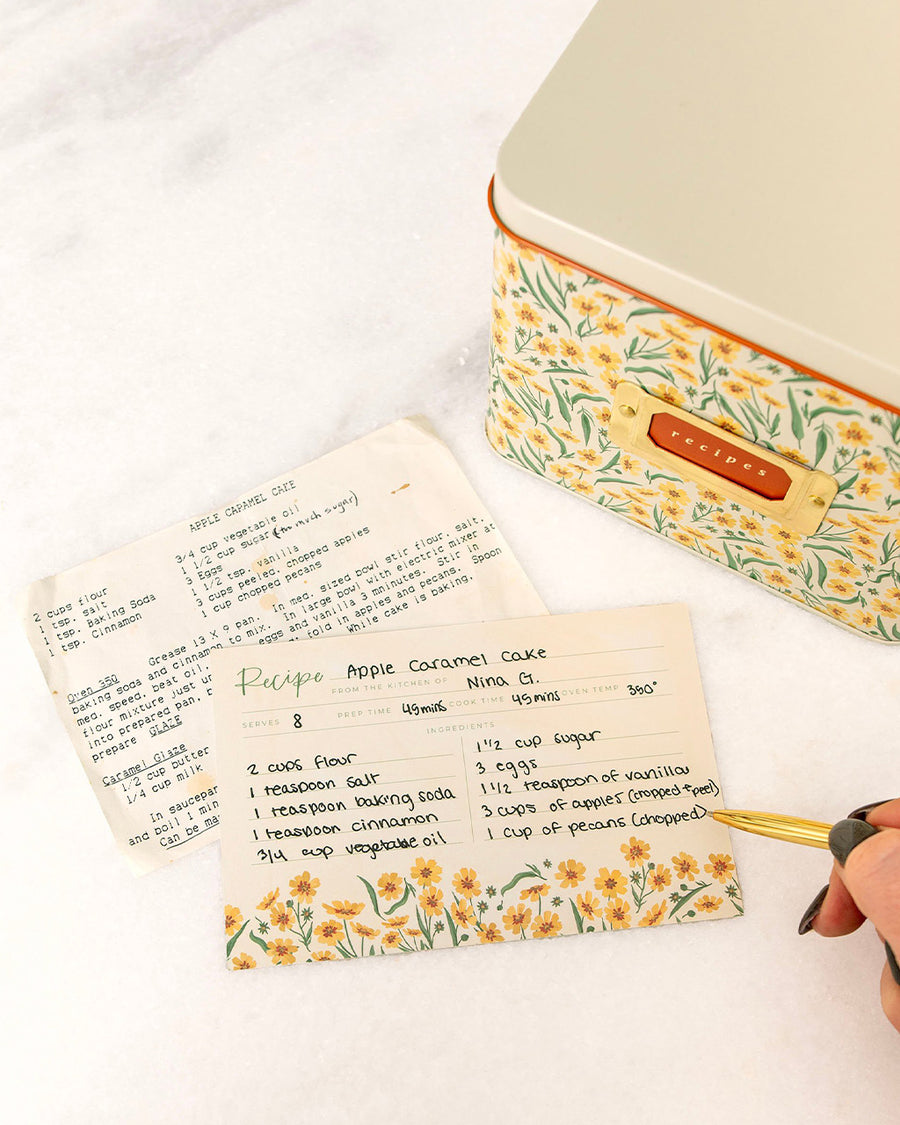 recipes
APPLE CARAMEL CAKE
2 cups flour
1 tsp. salt
1 tsp. Baking Soda
1 tsp. Cinnamon
3/4 cup vegetable oil
1 1/2 cup sugar (too much sugar)
3 Eggs
1 1/2 tsp. vanilla
3 cups peeled, chopped apples
1 cup chopped pecans
Oven 350 Grease 13 X 9 pan. In med. sized bowl stir flour, salt,
baking soda and cinnamon to mix. In large bowl with electric mixer at
med. speed, beat oil, eggs and vanilla 3 minutes. Stir in
flour mixture just un fold in apples and pecans. Spoon
into prepared pan. While cake is baking,
prepare GLAZE
Caramel Glaze
1/2 cup butter
1/4 cup milk
In saucepan
and boil 1 min
Can be ma
Recipe Apple Caramel Cake
FROM THE KITCHEN OF Nina G.
SERVES 8 PREP TIME 45mins COOK TIME 45mins OVEN TEMP 350°
INGREDIENTS
2 cups flour
1 teaspoon salt
1 teaspoon baking soda
1 teaspoon cinnamon
3/4 cup vegetable oil
1 1/2 cup sugar
3 eggs
1 1/2 teaspoon of vanilla
3 cups of apples (chopped + peel)
1 cup of pecans (chopped)